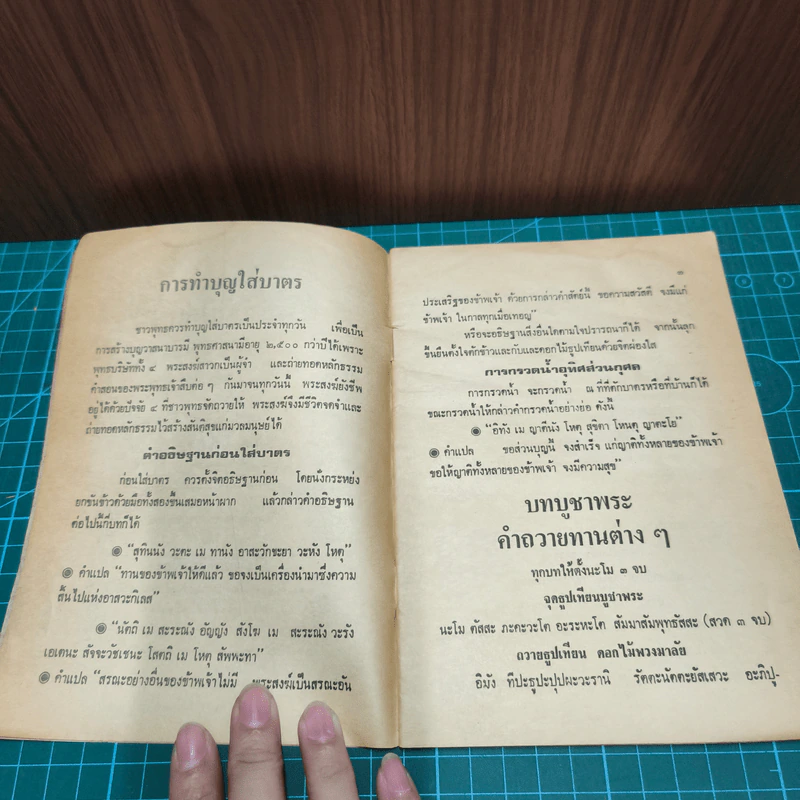 การทำบุญใส่บาตร
ชาวพุทธควรทำบุญใส่บาตรเป็นประจำทุกวัน เพื่อเป็น
การสร้างบุญวาสนาบารมี พุทธศาสนามีอายุ ๒,๕๐๐ กว่าปีได้เพราะ
พุทธบริษัททั้ง ๔ พระสงฆ์สาวกเป็นผู้จำ และถ่ายทอดหลักธรรม
คำสอนของพระพุทธเจ้าสืบต่อ ๆ กันมาจนทุกวันนี้ พระสงฆ์ยังชีพ
อยู่ได้ด้วยปัจจัย ๔ ที่ชาวพุทธจัดถวายให้ พระสงฆ์จึงมีชีวิตจดจำและ
ถ่ายทอดหลักธรรมไว้สร้างสันติสุขแก่มวลมนุษย์ได้
คำอธิษฐานก่อนใส่บาตร
ก่อนใส่บาตร ควรตั้งจิตอธิษฐานก่อน โดยนั่งกระหย่ง
ยกขันข้าวด้วยมือทั้งสองขึ้นเสมอหน้าผาก แล้วกล่าวคำอธิษฐาน
ต่อไปนี้กี่บทก็ได้
◉ "สุทินนัง วะตะ เม ทานัง อาสะวักขะยา วะหัง โหตุ"
◉ คำแปล "ทานของข้าพเจ้าให้ดีแล้ว ขอจงเป็นเครื่องนำมาซึ่งความ
สิ้นไปแห่งอาสวะกิเลส"
◉ "นัตถิ เม สะระณัง อัญญัง สังโฆ เม สะระณัง วะรัง
เอเตนะ สัจจะวัชเชนะ โสตถิ เม โหตุ สัพพะทา"
◉ คำแปล "สรณะอย่างอื่นของข้าพเจ้าไม่มี พระสงฆ์เป็นสรณะอัน
๑
ประเสริฐของข้าพเจ้า ด้วยการกล่าวคำสัตย์นี้ ขอความสวัสดี จงมีแก่
ข้าพเจ้า ในกาลทุกเมื่อเทอญ"
หรือจะอธิษฐานสิ่งอื่นใดตามใจปรารถนาก็ได้ จากนั้นลุก
ขึ้นยืนตั้งใจตักข้าวและกับและดอกไม้ธูปเทียนด้วยจิตผ่องใส
การกรวดน้ำอุทิศส่วนกุศล
การกรวดน้ำ จะกรวดน้ำ ณ ที่ที่ตักบาตรหรือที่บ้านก็ได้
ขณะกรวดน้ำให้กล่าวคำกรวดน้ำอย่างย่อย ดังนี้
◉ "อิทัง เม ญาตีนัง โหตุ สุขิตา โหนตุ ญาตะโย"
◉ คำแปล ขอส่วนบุญนี้ จงสำเร็จ แก่ญาติทั้งหลายของข้าพเจ้า
ขอให้ญาติทั้งหลายของข้าพเจ้า จงมีความสุข"
บทบูชาพระ
คำถวายทานต่าง ๆ
ทุกบทให้ตั้งนะโม ๓ จบ
จุดธูปเทียนบูชาพระ
นะโม ตัสสะ ภะคะวะโต อะระหะโต สัมมาสัมพุทธัสสะ (สวด ๓ จบ)
ถวายธูปเทียน ดอกไม้พวงมาลัย
อิมัง ทีปะธูปะปุปผะวะรานิ รัตตะนัตตะยัสเสวะ อะภิปู-